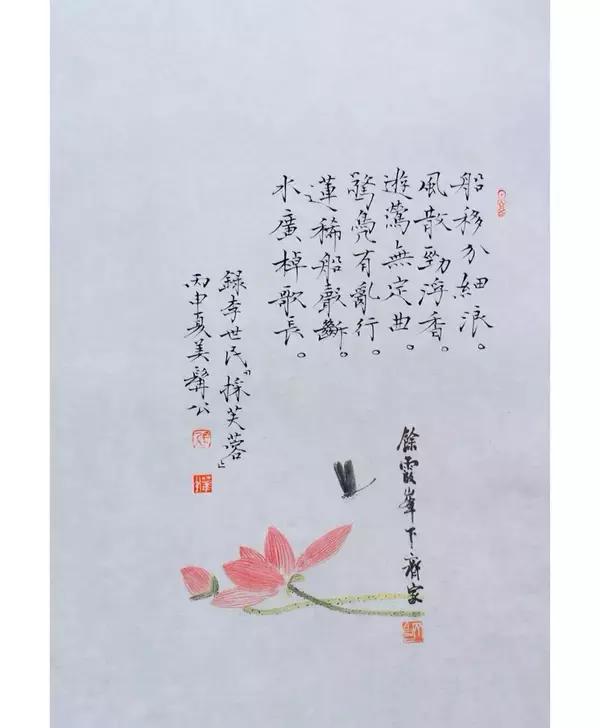 船移分細浪。
風散動浮香。
遊鶯無定曲。
驚鳧有亂行。
蓮稀船聲斷。
水廣棹歌長。
録李世民“採芙蓉”
丙申夏美髯公
餘霞峯下齊家